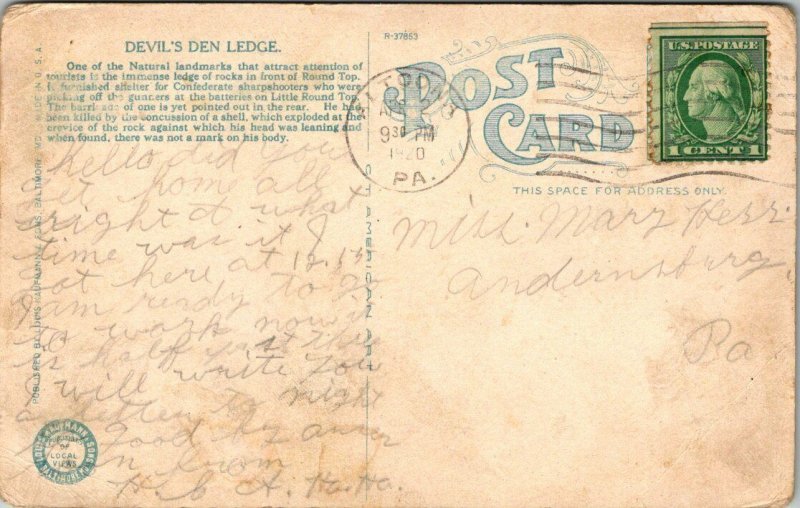 DEVIL'S DEN LEDGE.
One of the Natural landmarks that attract attention of
tourists is the immense ledge of rocks in front of Round Top.
It furnished shelter for Confederate sharpshooters who were
picking off the gunners at the batteries on Little Round Top.
The barricade of one is yet pointed out in the rear. He had
been killed by the concussion of a shell, which exploded at the
crevice of the rock against which his head was leaning and
when found, there was not a mark on his body.
hello did you
get home all
right & what
time was it I
got here at 12.15
I am ready to go
to work now it
is half past
I will write you
a letter to night
good by answer
soon from
R-37863
POST
CARD
THIS SPACE FOR ADDRESS ONLY.
ALTOONA
930 PM
1920
PA.
U.S. POSTAGE
1 CENT 1
Miss. Mary Herr
andernsburg
Pa
C.T. AMERICAN ART
PUBLISHED BY LOUIS KAUFMANN & SONS, BALTIMORE, MD.
MADE IN U.S.A.
LOUIS KAUFMANN & SONS
BALTIMORE MD.
PUBLISHERS
OF
LOCAL
VIEWS